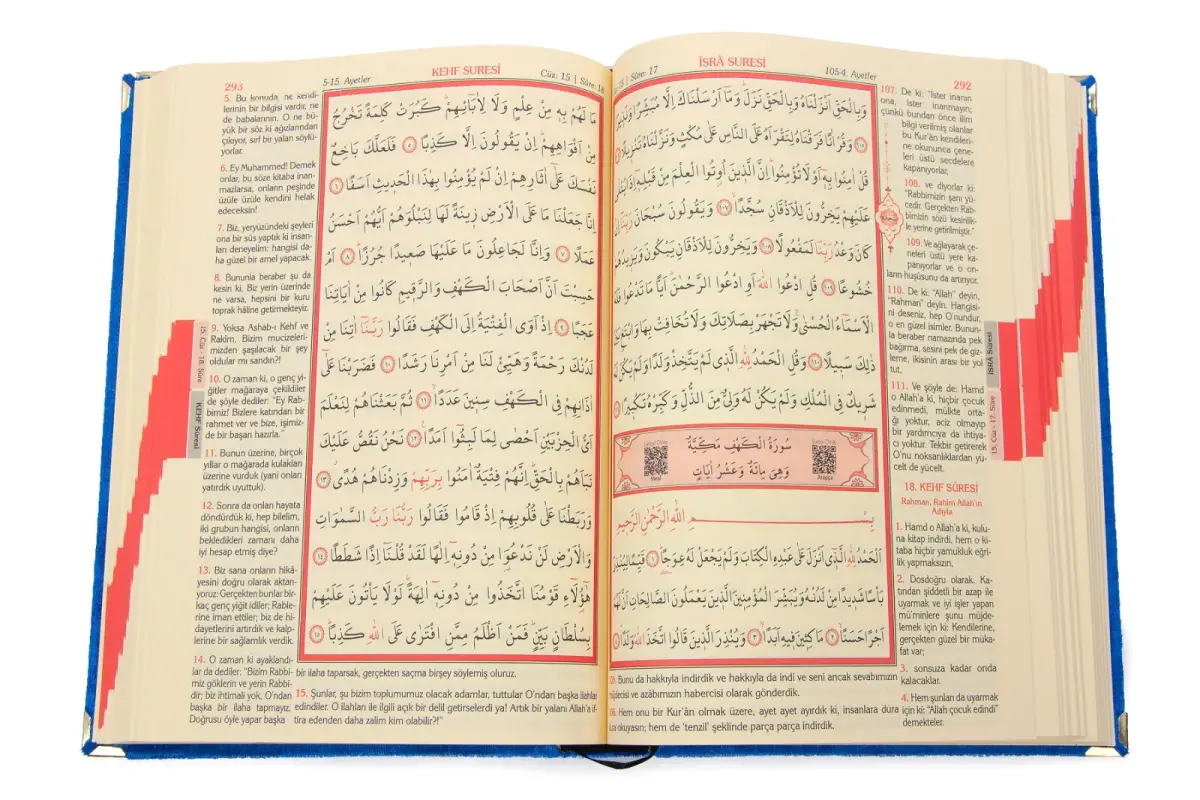 292
İSRÂ SURESİ
105-4. Ayetler
وَبِالْحَقِّ اَنْزَلْنَاهُ وَبِالْحَقِّ نَزَلَ وَمَٓا اَرْسَلْنَاكَ اِلَّا مُبَشِّرًا
وَقُرْاٰنًا فَرَقْنَاهُ لِتَقْرَاَهُ عَلَى النَّاسِ عَلٰى مُكْثٍ وَنَزَّلْنَاهُ تَنْزٖيلًا
قُلْ اٰمِنُوا بِهٖٓ اَوْ لَا تُؤْمِنُوا اِنَّ الَّذٖينَ اُوتُوا الْعِلْمَ مِنْ قَبْلِهٖٓ اِذَا يُتْلٰى
عَلَيْهِمْ يَخِرُّونَ لِلْاَذْقَانِ سُجَّدًا ﴿١٠٧﴾ وَيَقُولُونَ سُبْحَانَ رَبِّنَٓا
كَانَ وَعْدُ رَبِّنَا لَمَفْعُولًا ﴿١٠٨﴾ وَيَخِرُّونَ لِلْاَذْقَانِ يَبْكُونَ وَيَزٖيدُهُمْ
خُشُوعًا ﴿١٠٩﴾ قُلِ ادْعُوا اللّٰهَ اَوِ ادْعُوا الرَّحْمٰنَ اَيًّا مَا تَدْعُوا فَلَهُ
الْاَسْمَٓاءُ الْحُسْنٰى وَلَا تَجْهَرْ بِصَلَاتِكَ وَلَا تُخَافِتْ بِهَا وَابْتَغِ بَيْنَ
ذٰلِكَ سَبٖيلًا ﴿١١٠﴾ وَقُلِ الْحَمْدُ لِلّٰهِ الَّذٖي لَمْ يَتَّخِذْ وَلَدًا وَلَمْ يَكُنْ لَهُ
شَرٖيكٌ فِي الْمُلْكِ وَلَمْ يَكُنْ لَهُ وَلِيٌّ مِنَ الذُّلِّ وَكَبِّرْهُ تَكْبٖيرًا
سُورَةُ الْكَهْفِ مَكِّيَّةٌ
وَهِيَ مِائَةٌ وَعَشْرُ اٰيَاتٍ
Meal
Arapça
بِسْمِ اللّٰهِ الرَّحْمٰنِ الرَّحٖيمِ
اَلْحَمْدُ لِلّٰهِ الَّذٖٓي اَنْزَلَ عَلٰى عَبْدِهِ الْكِتَابَ وَلَمْ يَجْعَلْ لَهُ عِوَجًا ﴿١﴾ قَيِّمًا لِيُنْذِرَ
بَاْسًا شَدٖيدًا مِنْ لَدُنْهُ وَيُبَشِّرَ الْمُؤْمِنٖينَ الَّذٖينَ يَعْمَلُونَ الصَّالِحَاتِ اَنَّ لَهُمْ
اَجْرًا حَسَنًا ﴿٢﴾ مَاكِثٖينَ فٖيهِ اَبَدًا ﴿٣﴾ وَيُنْذِرَ الَّذٖينَ قَالُوا اتَّخَذَ اللّٰهُ وَلَدًا
Bunu da hakkıyla indirdik ve hakkıyla da indi ve seni ancak sevabımızın
müjdecisi ve azabımızın habercisi olarak gönderdik.
Hem onu bir Kur'ân olmak üzere, ayet ayet ayırdık ki, insanlara dura
dura okuyasın; hem de 'tenzil' şeklinde parça parça indirdik.
107. De ki: "İster inanın
ona, ister inanmayın;
çünkü bundan önce ilim
bilgi verilmiş olanlar
bu Kur'ân kendileri-
ne okununca çene-
leri üstü secdelere
kapanıyorlar,
108. ve diyorlar ki:
"Rabbimizin şanı yü-
cedir. Gerçekten Rab-
bimizin sözü kesinlik-
le yerine getirilmiştir."
109. Ve ağlayarak çe-
neleri üstü yere ka-
panıyorlar ve o on-
ların huşûsunu da artırıyor.
110. De ki: "Allah" deyin,
"Rahman" deyin. Hangisi-
ni deseniz, hep O'nundur,
o en güzel isimler. Bunun-
la beraber namazında pek
bağırma, sesini pek de giz-
leme, ikisinin arası bir yol
tut.
111. Ve şöyle de: Hamd
o Allah'a ki, hiçbir çocuk
edinmedi, mülkte ortа-
ğı yoktur, aciz olmayıp
bir yardımcıya da ihtiya-
cı yoktur. Tekbir getirerek
O'nu noksanlıklardan yü-
celt de yücelt.
18. KEHF SÛRESİ
Rahman, Rahim Allah'ın
Adıyla
1. Hamd o Allah'a ki, kulu-
na kitap indirdi, hem o ki-
taba hiçbir yamukluk eğri-
lik yapmaksızın,
2. Dosdoğru olarak. Ka-
tından şiddetli bir azap ile
uyarmak ve iyi işler yapan
mü'minlere şunu müjde-
lemek için ki: Kendilerine,
gerçekten güzel bir müka-
fat var;
3. sonsuza kadar onda
kalacaklar.
4. Hem şunları da uyarmak
için ki: "Allah çocuk edindi"
demekteler.
İSRÂ Sûresi
15. Cüz - 17. Sûre
293
5-15. Ayetler
KEHF SURESİ
Cüz: 15 | Sûre: 18
مَا لَهُمْ بِهٖ مِنْ عِلْمٍ وَلَا لِاٰبَٓائِهِمْ كَبُرَتْ كَلِمَةً تَخْرُجُ
مِنْ اَفْوَاهِهِمْ اِنْ يَقُولُونَ اِلَّا كَذِبًا ﴿٥﴾ فَلَعَلَّكَ بَاخِعٌ
نَفْسَكَ عَلٰٓى اٰثَارِهِمْ اِنْ لَمْ يُؤْمِنُوا بِهٰذَا الْحَدٖيثِ اَسَفًا ﴿٦﴾
اِنَّا جَعَلْنَا مَا عَلَى الْاَرْضِ زٖينَةً لَهَا لِنَبْلُوَهُمْ اَيُّهُمْ اَحْسَنُ
عَمَلًا ﴿٧﴾ وَاِنَّا لَجَاعِلُونَ مَا عَلَيْهَا صَعٖيدًا جُرُزًا ﴿٨﴾ اَمْ
حَسِبْتَ اَنَّ اَصْحَابَ الْكَهْفِ وَالرَّقٖيمِ كَانُوا مِنْ اٰيَاتِنَا
عَجَبًا ﴿٩﴾ اِذْ اَوَى الْفِتْيَةُ اِلَى الْكَهْفِ فَقَالُوا رَبَّنَٓا اٰتِنَا مِنْ
لَدُنْكَ رَحْمَةً وَهَيِّئْ لَنَا مِنْ اَمْرِنَا رَشَدًا ﴿١٠﴾ فَضَرَبْنَا عَلٰٓى
اٰذَانِهِمْ فِي الْكَهْفِ سِنٖينَ عَدَدًا ﴿١١﴾ ثُمَّ بَعَثْنَاهُمْ لِنَعْلَمَ
اَيُّ الْحِزْبَيْنِ اَحْصٰى لِمَا لَبِثُٓوا اَمَدًا ﴿١٢﴾ نَحْنُ نَقُصُّ عَلَيْكَ
نَبَاَهُمْ بِالْحَقِّ اِنَّهُمْ فِتْيَةٌ اٰمَنُوا بِرَبِّهِمْ وَزِدْنَاهُمْ هُدًى ﴿١٣﴾
وَرَبَطْنَا عَلٰى قُلُوبِهِمْ اِذْ قَامُوا فَقَالُوا رَبُّنَا رَبُّ السَّمٰوَاتِ
وَالْاَرْضِ لَنْ نَدْعُوَا مِنْ دُونِهٖٓ اِلٰهًا لَقَدْ قُلْنَٓا اِذًا شَطَطًا ﴿١٤﴾
هٰٓؤُلَٓاءِ قَوْمُنَا اتَّخَذُوا مِنْ دُونِهٖٓ اٰلِهَةً لَوْلَا يَاْتُونَ عَلَيْهِمْ
بِسُلْطَانٍ بَيِّنٍ فَمَنْ اَظْلَمُ مِمَّنِ افْتَرٰى عَلَى اللّٰهِ كَذِبًا ﴿١٥﴾
5. Bu konuda, ne kendi-
lerinin bir bilgisi vardır, ne
de babalarının. O ne bü-
yük bir söz ki ağızlarından
çıkıyor, sırf bir yalan söylü-
yorlar.
6. Ey Muhammed! Demek
onlar, bu söze kitaba inan-
mazlarsa, onların peşinde
üzüle üzüle kendini helak
edeceksin!
7. Biz, yeryüzündeki şeyleri
ona bir süs yaptık ki insan-
ları deneyelim: hangisi da-
ha güzel bir amel yapacak.
8. Bununla beraber şu da
kesin ki. Biz yerin üzerinde
ne varsa, hepsini bir kuru
toprak hâline getirmekteyiz.
9. Yoksa Ashab-ı Kehf ve
Rakim, Bizim mucizeleri-
mizden şaşılacak bir şey
oldular mı sandın?!
10. O zaman ki, o genç yi-
ğitler mağaraya çekildiler
de şöyle dediler: "Ey Rab-
bimiz! Bizlere katından bir
rahmet ver ve bize, işimiz-
de bir başarı hazırla."
11. Bunun üzerine, birçok
yıllar o mağarada kulakları
üzerine vurduk (yani onları
yatırdık uyuttuk).
12. Sonra da onları hayata
döndürdük ki, hep bilelim,
iki grubun hangisi, onların
bekledikleri zamanı daha
iyi hesap etmiş diye?
13. Biz sana onların hikâ-
yesini doğru olarak aktarı-
yoruz: Gerçekten bunlar bir-
kaç genç yiğit idiler; Rable-
rine iman ettiler; biz de hi-
dayetlerini artırdık ve kalp-
lerine bir sağlamlık verdik.
14. O zaman ki ayaklandı-
lar da dediler: "Bizim Rabbi-
miz göklerin ve yerin Rabbi-
dir; biz ihtimali yok, O'ndan
başka bir ilaha tapmayız.
Doğrusu öyle yapar başka
bir ilaha taparsak, gerçekten saçma birşey söylemiş oluruz.
15. Şunlar, şu bizim toplumumuz olacak adamlar, tuttular O'ndan başka ilahlar
edindiler. O ilahları ile ilgili açık bir delil getirselerdi ya! Artık bir yalanı Allah'a if-
tira edenden daha zalim kim olabilir?!"
15. Cüz - 18. Sûre
KEHF Sûresi